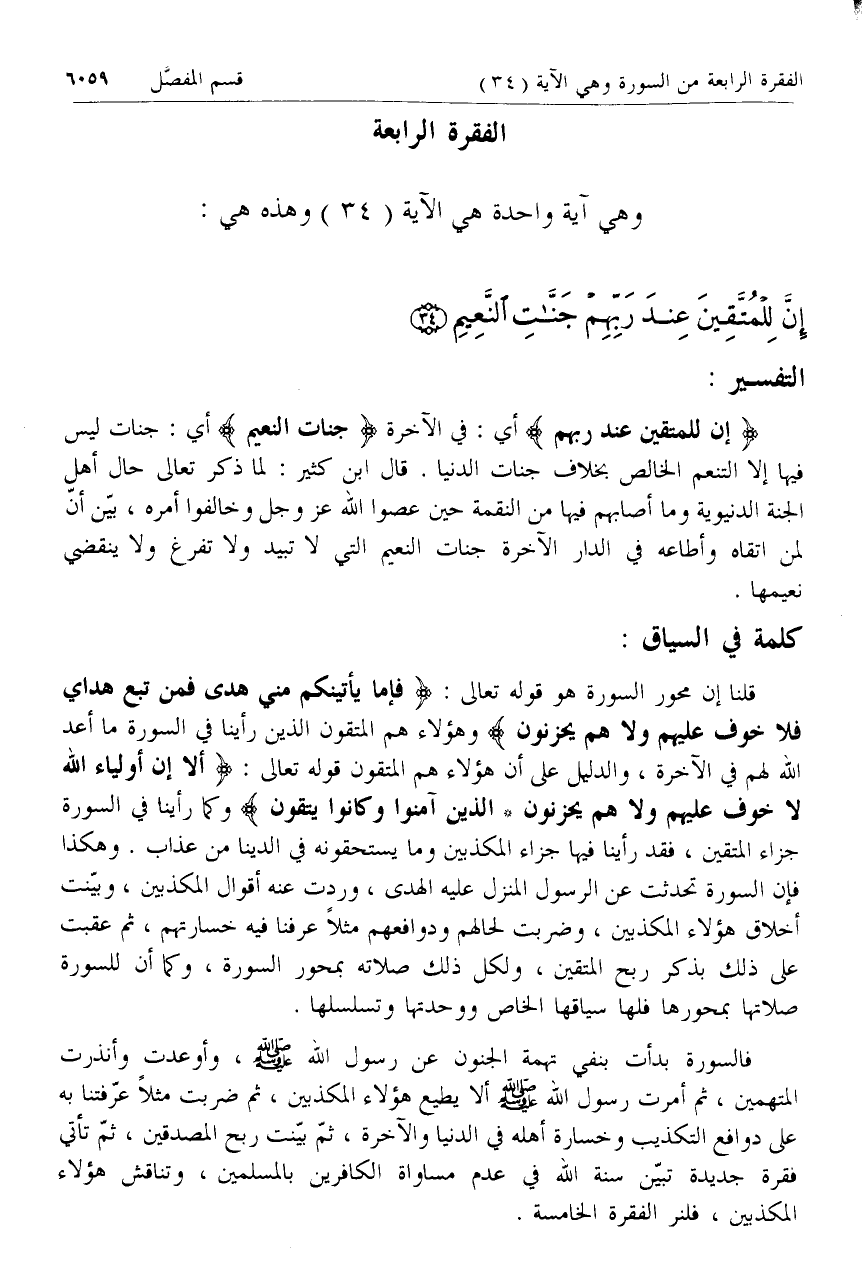 الفقرة الرابعة من السورة وهي الآية ( ٣٤ ) قسم المفصَّل ٦٠٥٩
الفقرة الرابعة
وهي آية واحدة هي الآية ( ٣٤ ) وهذه هي :
إِنَّ لِلْمُتَّقِينَ عِندَ رَبِّهِمْ جَنَّٰتِ ٱلنَّعِيمِ ٣٤
التفسير :
﴿ إن للمتقين عند ربهم ﴾ أي : في الآخرة ﴿ جنات النعيم ﴾ أي : جنات ليس
فيها إلا التنعم الخالص بخلاف جنات الدنيا . قال ابن كثير : لما ذكر تعالى حال أهل
الجنة الدنيوية وما أصابهم فيها من النقمة حين عصوا الله عز وجل وخالفوا أمره ، بيّن أنّ
لمن اتقاه وأطاعه في الدار الآخرة جنات النعيم التي لا تبيد ولا تفرغ ولا ينقضي
نعيمها .
كلمة في السياق :
قلنا إن محور السورة هو قوله تعالى : ﴿ فإما يأتينكم مني هدى فمن تبع هداي
فلا خوف عليهم ولا هم يحزنون ﴾ وهؤلاء هم المتقون الذين رأينا في السورة ما أعد
الله لهم في الآخرة ، والدليل على أن هؤلاء هم المتقون قوله تعالى : ﴿ ألا إن أولياء الله
لا خوف عليهم ولا هم يحزنون * الذين آمنوا وكانوا يتقون ﴾ وكما رأينا في السورة
جزاء المتقين ، فقد رأينا فيها جزاء المكذبين وما يستحقونه في الدينا من عذاب . وهكذا
فإن السورة تحدثت عن الرسول المنزل عليه الهدى ، وردت عنه أقوال المكذبين ، وبيّنت
أخلاق هؤلاء المكذبين ، وضربت لحالهم ودوافعهم مثلاً عرفنا فيه خسارتهم ، ثم عقبت
على ذلك بذكر ربح المتقين ، ولكل ذلك صلاته بمحور السورة ، وكما أن للسورة
صلاتها بمحورها فلها سياقها الخاص ووحدتها وتسلسلها .
فالسورة بدأت بنفي تهمة الجنون عن رسول الله ﷺ ، وأوعدت وأنذرت
المتهمين ، ثم أمرت رسول الله ﷺ ألا يطيع هؤلاء المكذبين ، ثم ضربت مثلاً عرّفتنا به
على دوافع التكذيب وخسارة أهله في الدنيا والآخرة ، ثمّ بيّنت ربح المصدقين ، ثمّ تأتي
فقرة جديدة تبيّن سنة الله في عدم مساواة الكافرين بالمسلمين ، وتناقش هؤلاء
المكذبين ، فلنر الفقرة الخامسة .